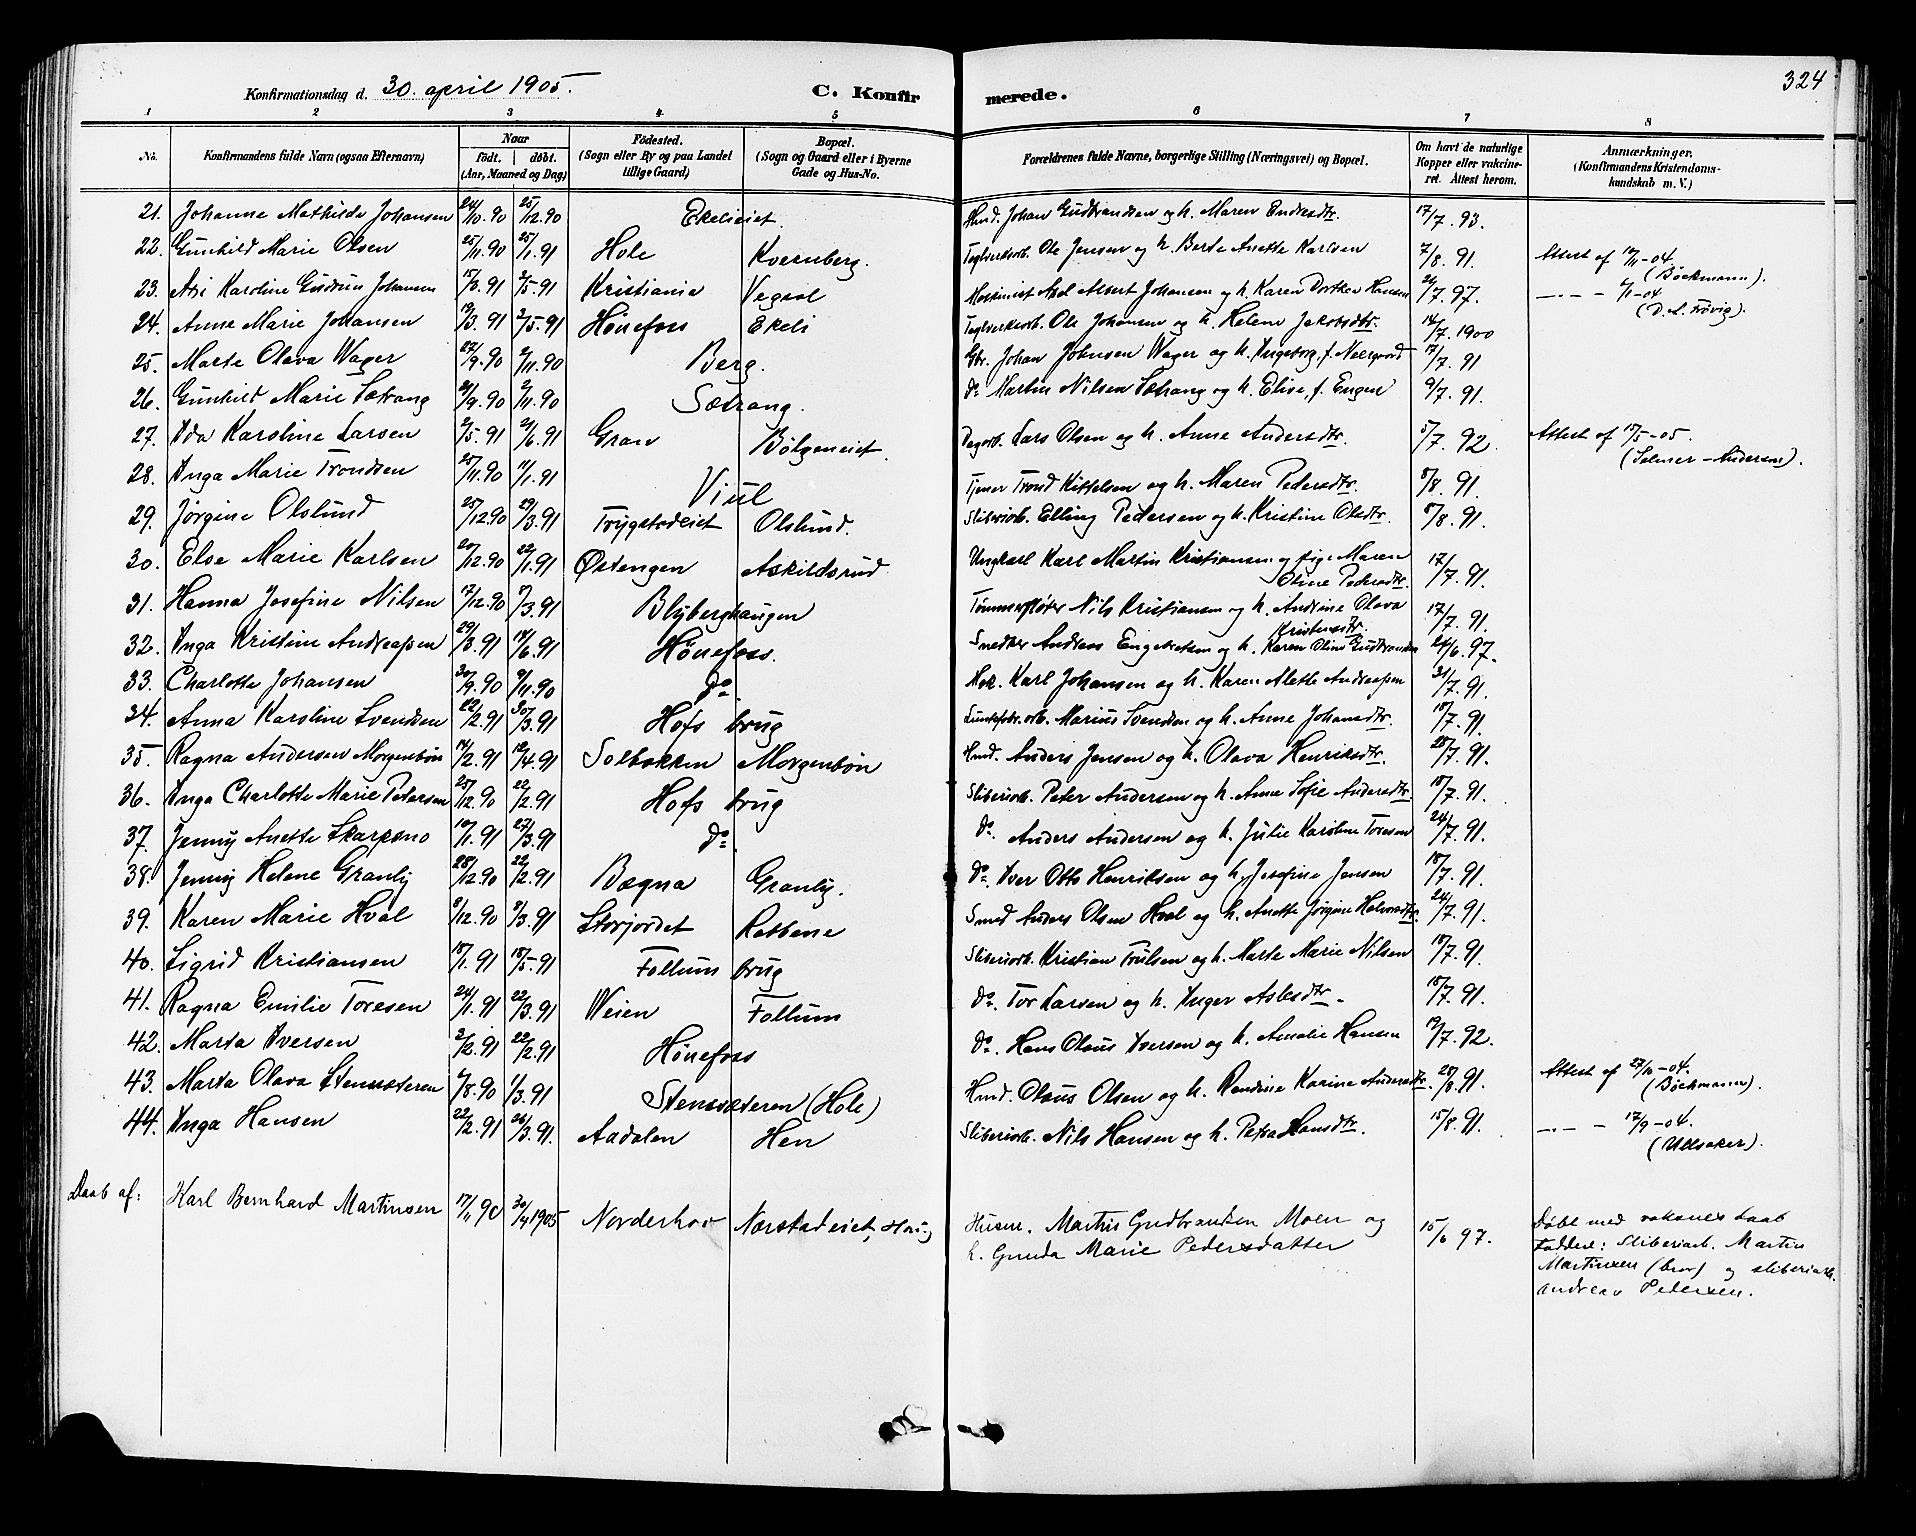 324
Konfirmationsdag d. 30. april 1905.
C. Konfirmerede.
1 2 3 4 5 6 7 8
No. Konfirmandens fulde Navn (ogsaa Efternavn) Naar født. | døbt. (Aar, Maaned og Dag) Fødested. (Sogn eller By og paa Landet tillige Gaard) Bopæl. (Sogn og Gaard eller i Byerne Gade og Hus-No. Forældrenes fulde Navne, borgerlige Stilling (Næringsvei) og Bopæl. Om havt de naturlige Kopper eller vakcineret. Attest herom. Anmærkninger. (Konfirmandens Kristendomskundskab m. V.)
21. Johanne Mathilde Johansen 24/10.90 25/12.90 Ekelieiet. Hmd. Johan Gudbrandsen og h. Maren Endresdtr. 17/7.93.
22. Gunhild Marie Olsen 25/11.90 25/1.91 Hole Kvernberg. Teglverksarb. Ole Jensen og h. Berte Anette Karlsen 7/8.91. Attest af 12/11-04 (Bøckmann).
23. Asi Karoline Gudrun Johansen 15/3.91 3/5.91 Kristiania Vegaol Maskinist Axel Albert Johansen og h. Karen Dorthea Hansen 21/7.97. —.— - 6/1-04 (D. A. Frøvig).
24. Anne Marie Johansen 19/3.91 3/5.91 Hønefoss Ekeli Teglverksarb. Ole Johansen og h. Helene Jakobsdtr. 14/7.1900
25. Marte Olava Wager 27/9.90 2/11.90 Berg. Gbr. Johan Johnsen Wager og h. Ingeborg, f. Neergaard 17/7.91
26. Gunhild Marie Sætrang 21/9.90 2/11.90 Sætrang. Do Martin Nilsen Sætrang og h. Elise, f. Engen 9/7.91.
27. Ida Karoline Larsen 2/5.91 21/6.91 Gran Bølgeneiet. Dagarb. Lars Olsen og h. Anne Andersdtr. 5/7.92. Attest af 15/5-05. (Selmer-Andersen).
28. Inga Marie Trondsen 25/11.90 11/1.91 Viul Tjener Trond Kittelsen og h. Maren Pedersdtr. 8/8.91.
29. Jørgine Olslund 25/12.90 29/3.91 Trygstadeiet Olslund. Sliberiarb. Elling Pedersen og h. Kristine Olsdtr. 8/8.91.
30. Else Marie Karlsen 20/12.90 22/1.91 Østengen Askildsrud Ungkarl Karl Martin Kristiansen og pige Maren Oline Pedersdtr. 17/7.91.
31. Hanna Josefine Nilsen 17/12.90 8/3.91 Blyberghaugen Tømmerfløter Nils Kristiansen og h. Andrine Olava Kristensdtr. 17/7.91.
32. Inga Kristine Andreassen 29/3.91 14/6.91 Hønefoss. Snedker Andreas Engebretsen og h. Karen Oline Gudbrandsen 24/6.97.
33. Charlotte Johansen 30/9.90 9/11.90 Do. Mek. Karl Johansen og h. Karen Alette Andreassen 31/7.91.
34. Anna Karoline Svendsen 22/2.91 30/3.91 Hofs brug Luntefabr.arb. Marius Svendsen og h. Anne Johansdtr. 18/7.91.
35. Ragna Andersen Morgenbøn 14/2.91 12/4.91 Solbakken Morgenbøn Hmd. Anders Jensen og h. Olava Henriksdtr. 28/7.91.
36. Inga Charlotte Marie Petersen 25/12.90 22/2.91 Hofs brug Sliberiarb. Peter Andersen og h. Anne Sofie Andersdtr. 18/7.91.
37. Jenny Anette Skarpsno 10/1.91 27/3.91 Do. Do. Anders Andersen og h. Julie Karoline Toresen 24/7.91.
38. Jenny Helene Granly 28/12.90 22/2.91 Bægna Granly. Do. Iver Otto Henriksen og h. Josefine Jensen 18/7.91.
39. Karen Marie Hval 8/12.90 8/3.91 Storjordet Ratbene Smed Anders Olsen Hval og h. Anette Jørgine Halvorsdtr. 24/7.91.
40. Sigrid Kristiansen 18/1.91 18/5.91 Follum brug Sliberiarb. Kristian Trulsen og h. Marte Marie Nilsen 18/7.91.
41. Ragna Emilie Toresen 24/1.91 22/3.91 Weien Follum Do. Tor Larsen og h. Inger Aslesdtr. 18/7.91.
42. Marta Iversen 2/2.91 22/2.91 Hønefoss Do. Hans Olaus Iversen og h. Amalie Hansen 19/7.92.
43. Marta Olava Stensæteren 4/8.90 1/3.91 Stensæteren (Hole) Hmd. Olaus Olsen og h. Randine Karine Andersdtr. 28/8.91. Attest af 27/10-04. (Bøckmann).
44. Inga Hansen 22/2.91 26/3.91. Aadalen Hen Sliberiarb. Nils Hansen og h. Petra Hansdtr. 15/8.91. —.— - 17/9-04. (Ullsaker).
Daab af: Karl Bernhard Martinsen 17/11 90 30/4 1905 Norderhov Nærstadeiet, Husmd. Martin Gudbrandsen Moen og h. Gunda Marie Pedersdatter 15/6 97. Døbt med voksnes daab
Faddere: Sliberiarb. Martin
Martinsen (bror) og sliberiarb.
Andreas Petersen.